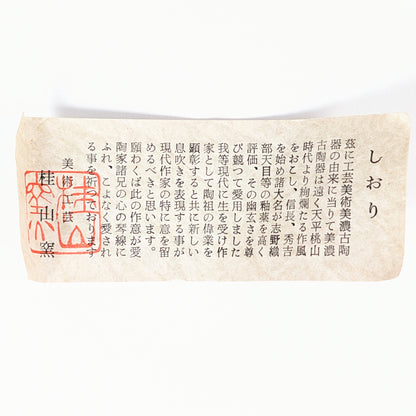 しおり
茲に工芸美術美濃古陶
器の由来に当りて美濃
古陶器は遠く天平桃山
時代より絢爛たる作風
をおこし、信長、秀吉
を始め諸大名が志野織
部天目等の釉薬を高く
評価、その幽玄さを尊
び競つて愛用しました
我等現代に生を受け作
家として陶祖の偉業を
顕彰すると共に新しい
息吹きを表現する事が
現代作家の特に意を留
めるべきと思います。
願わくば此の作意が愛
陶家諸兄の心の琴線に
ふれ、こよなく愛され
る事を祈つております
美術工芸
桂山窯